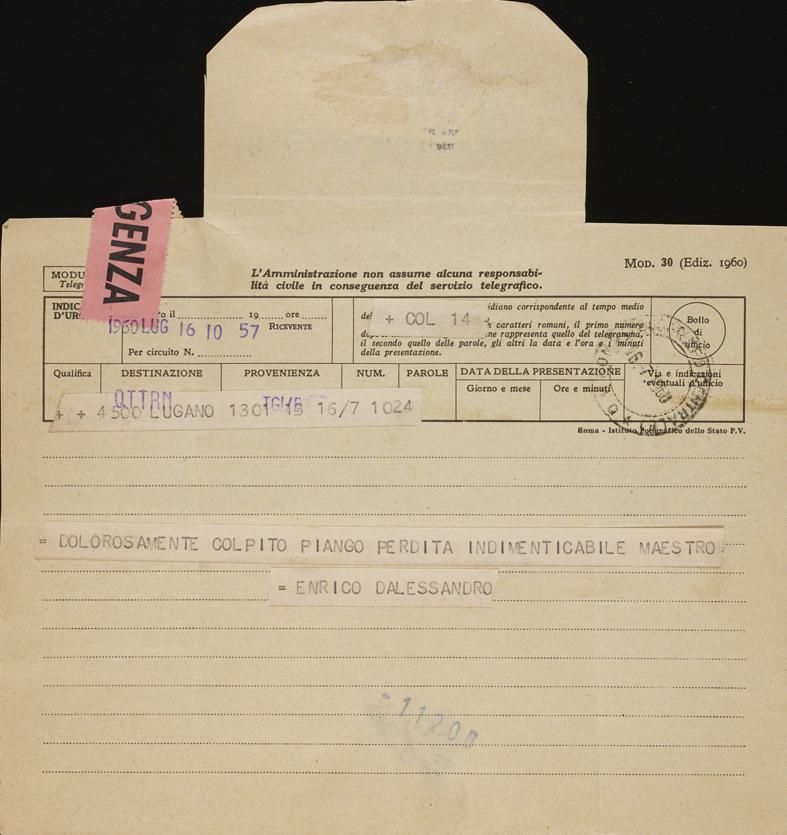 GENZA
MODU
Telegr
L'Amministrazione non assume alcuna responsabi-
lità civile in conseguenza del servizio telegrafico.
MOD. 30 (Ediz. 1960)
INDIC
D'UR
il 19 ore
1960 LUG 16 10 57
RICEVENTE
Per circuito N.
idiano corrispondente al tempo medio
del + COL 14
caratteri romani, il primo numero
ne rappresenta quello del telegramma,
il secondo quello delle parole, gli altri la data e l'ora e i minuti
della presentazione.
Bollo
di
ufficio
Qualifica DESTINAZIONE PROVENIENZA NUM. PAROLE DATA DELLA PRESENTAZIONE Via e indicazioni
eventuali d'ufficio
Giorno e mese Ore e minuti
+ + 4500 LUGANO 1301 15 16/7 1024
Roma - Istituto Poligrafico dello Stato P.V.
= DOLOROSAMENTE COLPITO PIANGO PERDITA INDIMENTICABILE MAESTRO
= ENRICO DALESSANDRO